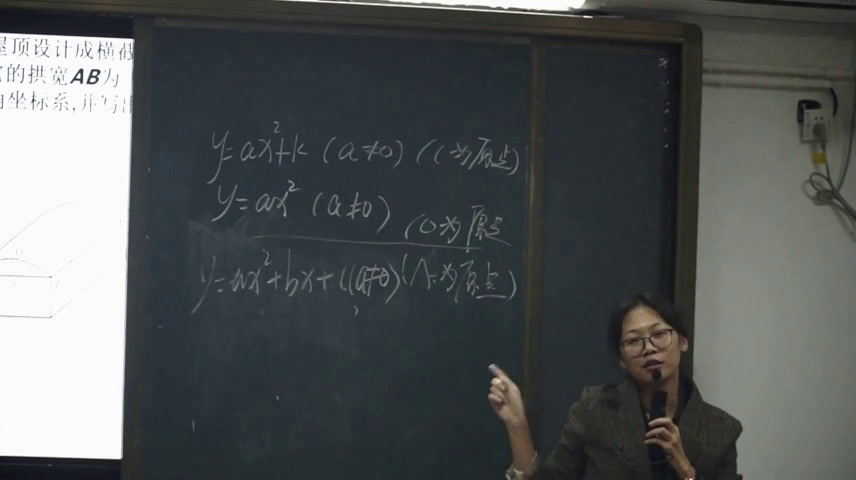 屋顶设计成横截
的拱宽AB为
坐标系,并写出
y=ax²+k (a≠0) (C为原点)
y=ax² (a≠0) (O为原点
y=ax²+bx+c(a≠0)(A为原点)